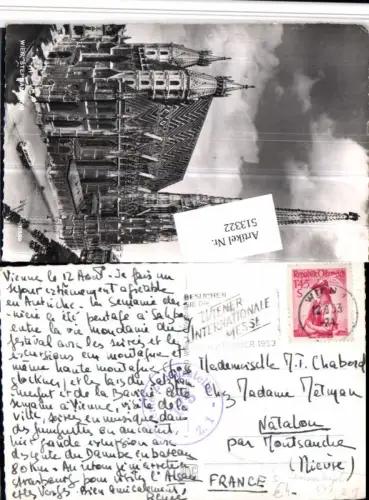 WIEN, ST.
Artikel Nr.
513322
Vienne le 12 Août - Je fais un
séjour extrêmement agréable
en Autriche. La semaine der-
nière a été partagée à Salzbourg
entre la vie mondaine du
festival avec les soirées et les
excursions en montagne et
même haute montagne
glockner, et les lacs du Salzkam-
mergut et de la Bavière. Cette
semaine à Vienne, visite de la
ville, soirées en musique dans
des
hier grande excursion avec
descente du Danube en bateau
80 Km - Au retour je m'arrête
Strasbourg pour visiter l'Alsace
et les Vosges. Bien amicalement,
BESUCHEN
SIE DIE
WIENER
INTERNATIONALE
MESSE
SEPTEMBER 1953
Republik Österreich
1.45
WIEN
Mademoiselle M.T. Chabord
chez Madame Metman
Natalou
par Montsauche
(Nièvre)
FRANCE